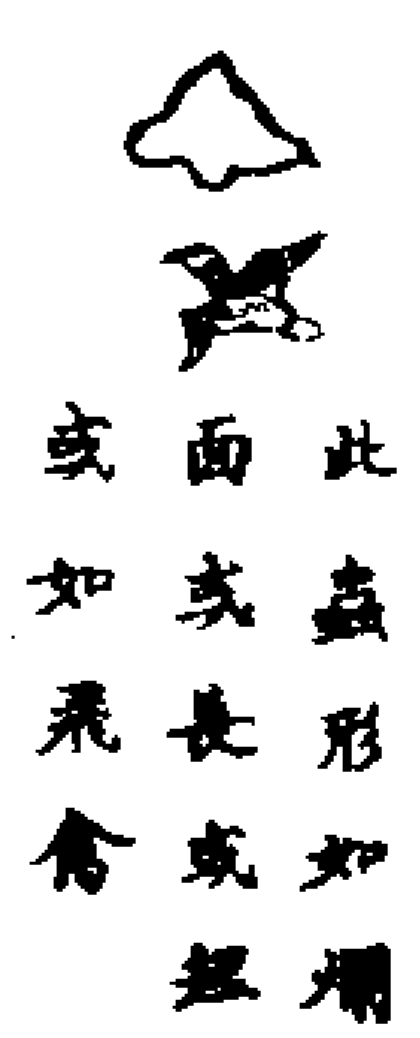 此蟲形如爛
面或長或短
或如飛禽